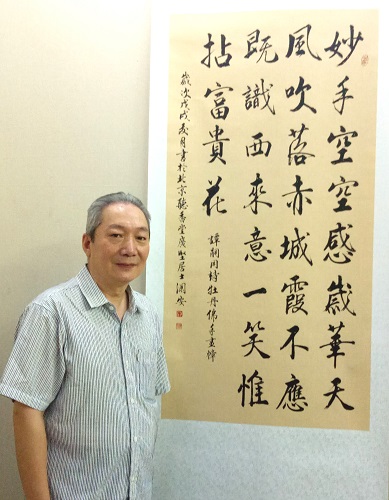 妙手空空感歲華天
風吹落赤城霞不應
既識西來意一笑惟
拈富貴花
譚嗣同詩牡丹佛手畫幛
歲次戊戌夏月書於北京聽香堂廣堅居士